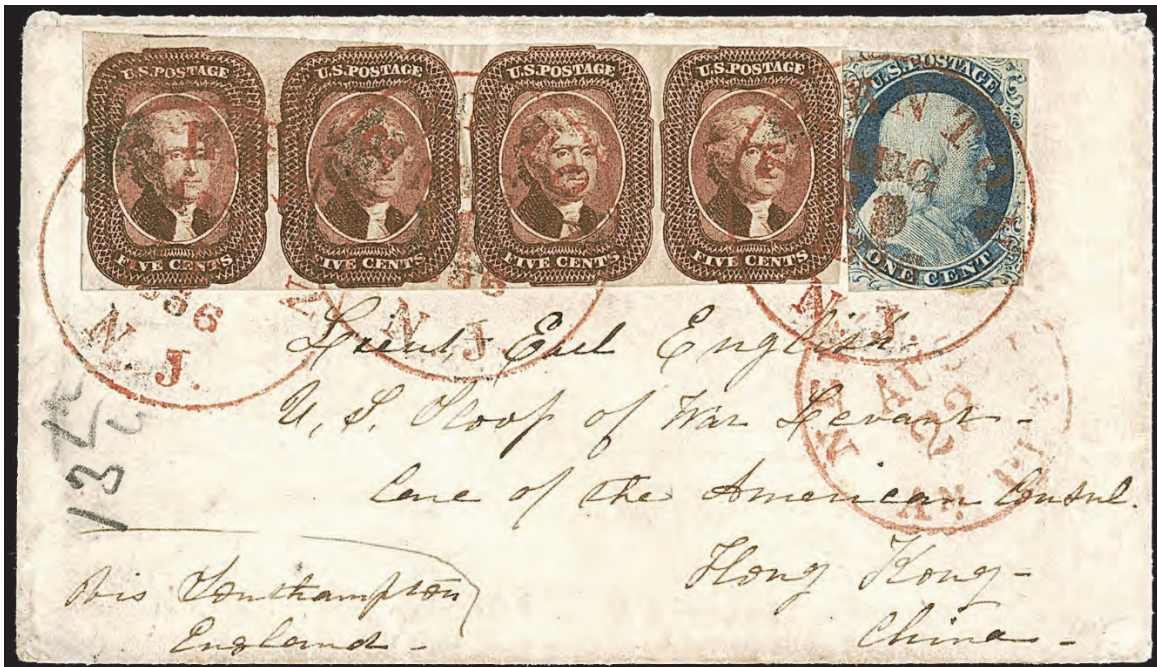 U.S. POSTAGE
FIVE CENTS
U.S. POSTAGE
FIVE CENTS
U.S. POSTAGE
FIVE CENTS
U.S. POSTAGE
FIVE CENTS
U.S. POSTAGE
ONE CENT
N.J.
N.J.
N.J.
AUG
22
Lieut. Earl English
U.S. Sloop of War Levant-
Care of the American Consul.
Hong Kong-
China-
Via Southampton
England-